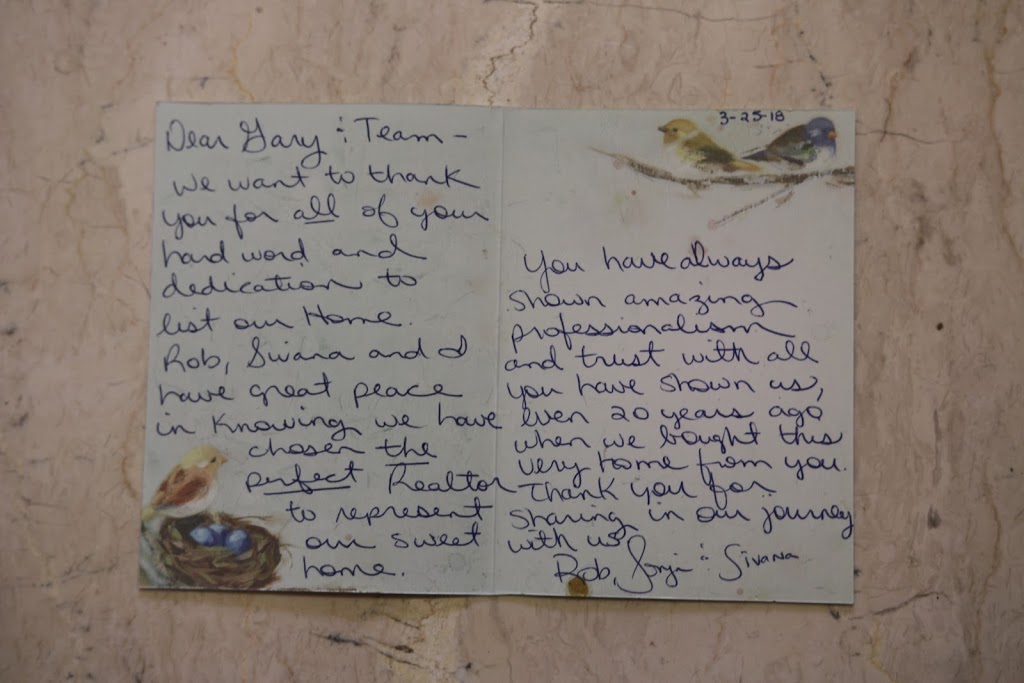 Dear Gary & Team -
we want to thank
you for all of your
hard word and
dedication to
list our Home.
Rob, Sivana and I
have great peace
in knowing we have
chosen the
perfect Realtor
to represent
our sweet
home.
3-25-18
You have always
shown amazing
professionalism
and trust with all
you have shown us,
even 20 years ago
when we bought this
very home from you.
Thank you for
sharing in our journey
with us
Rob, & Sivana